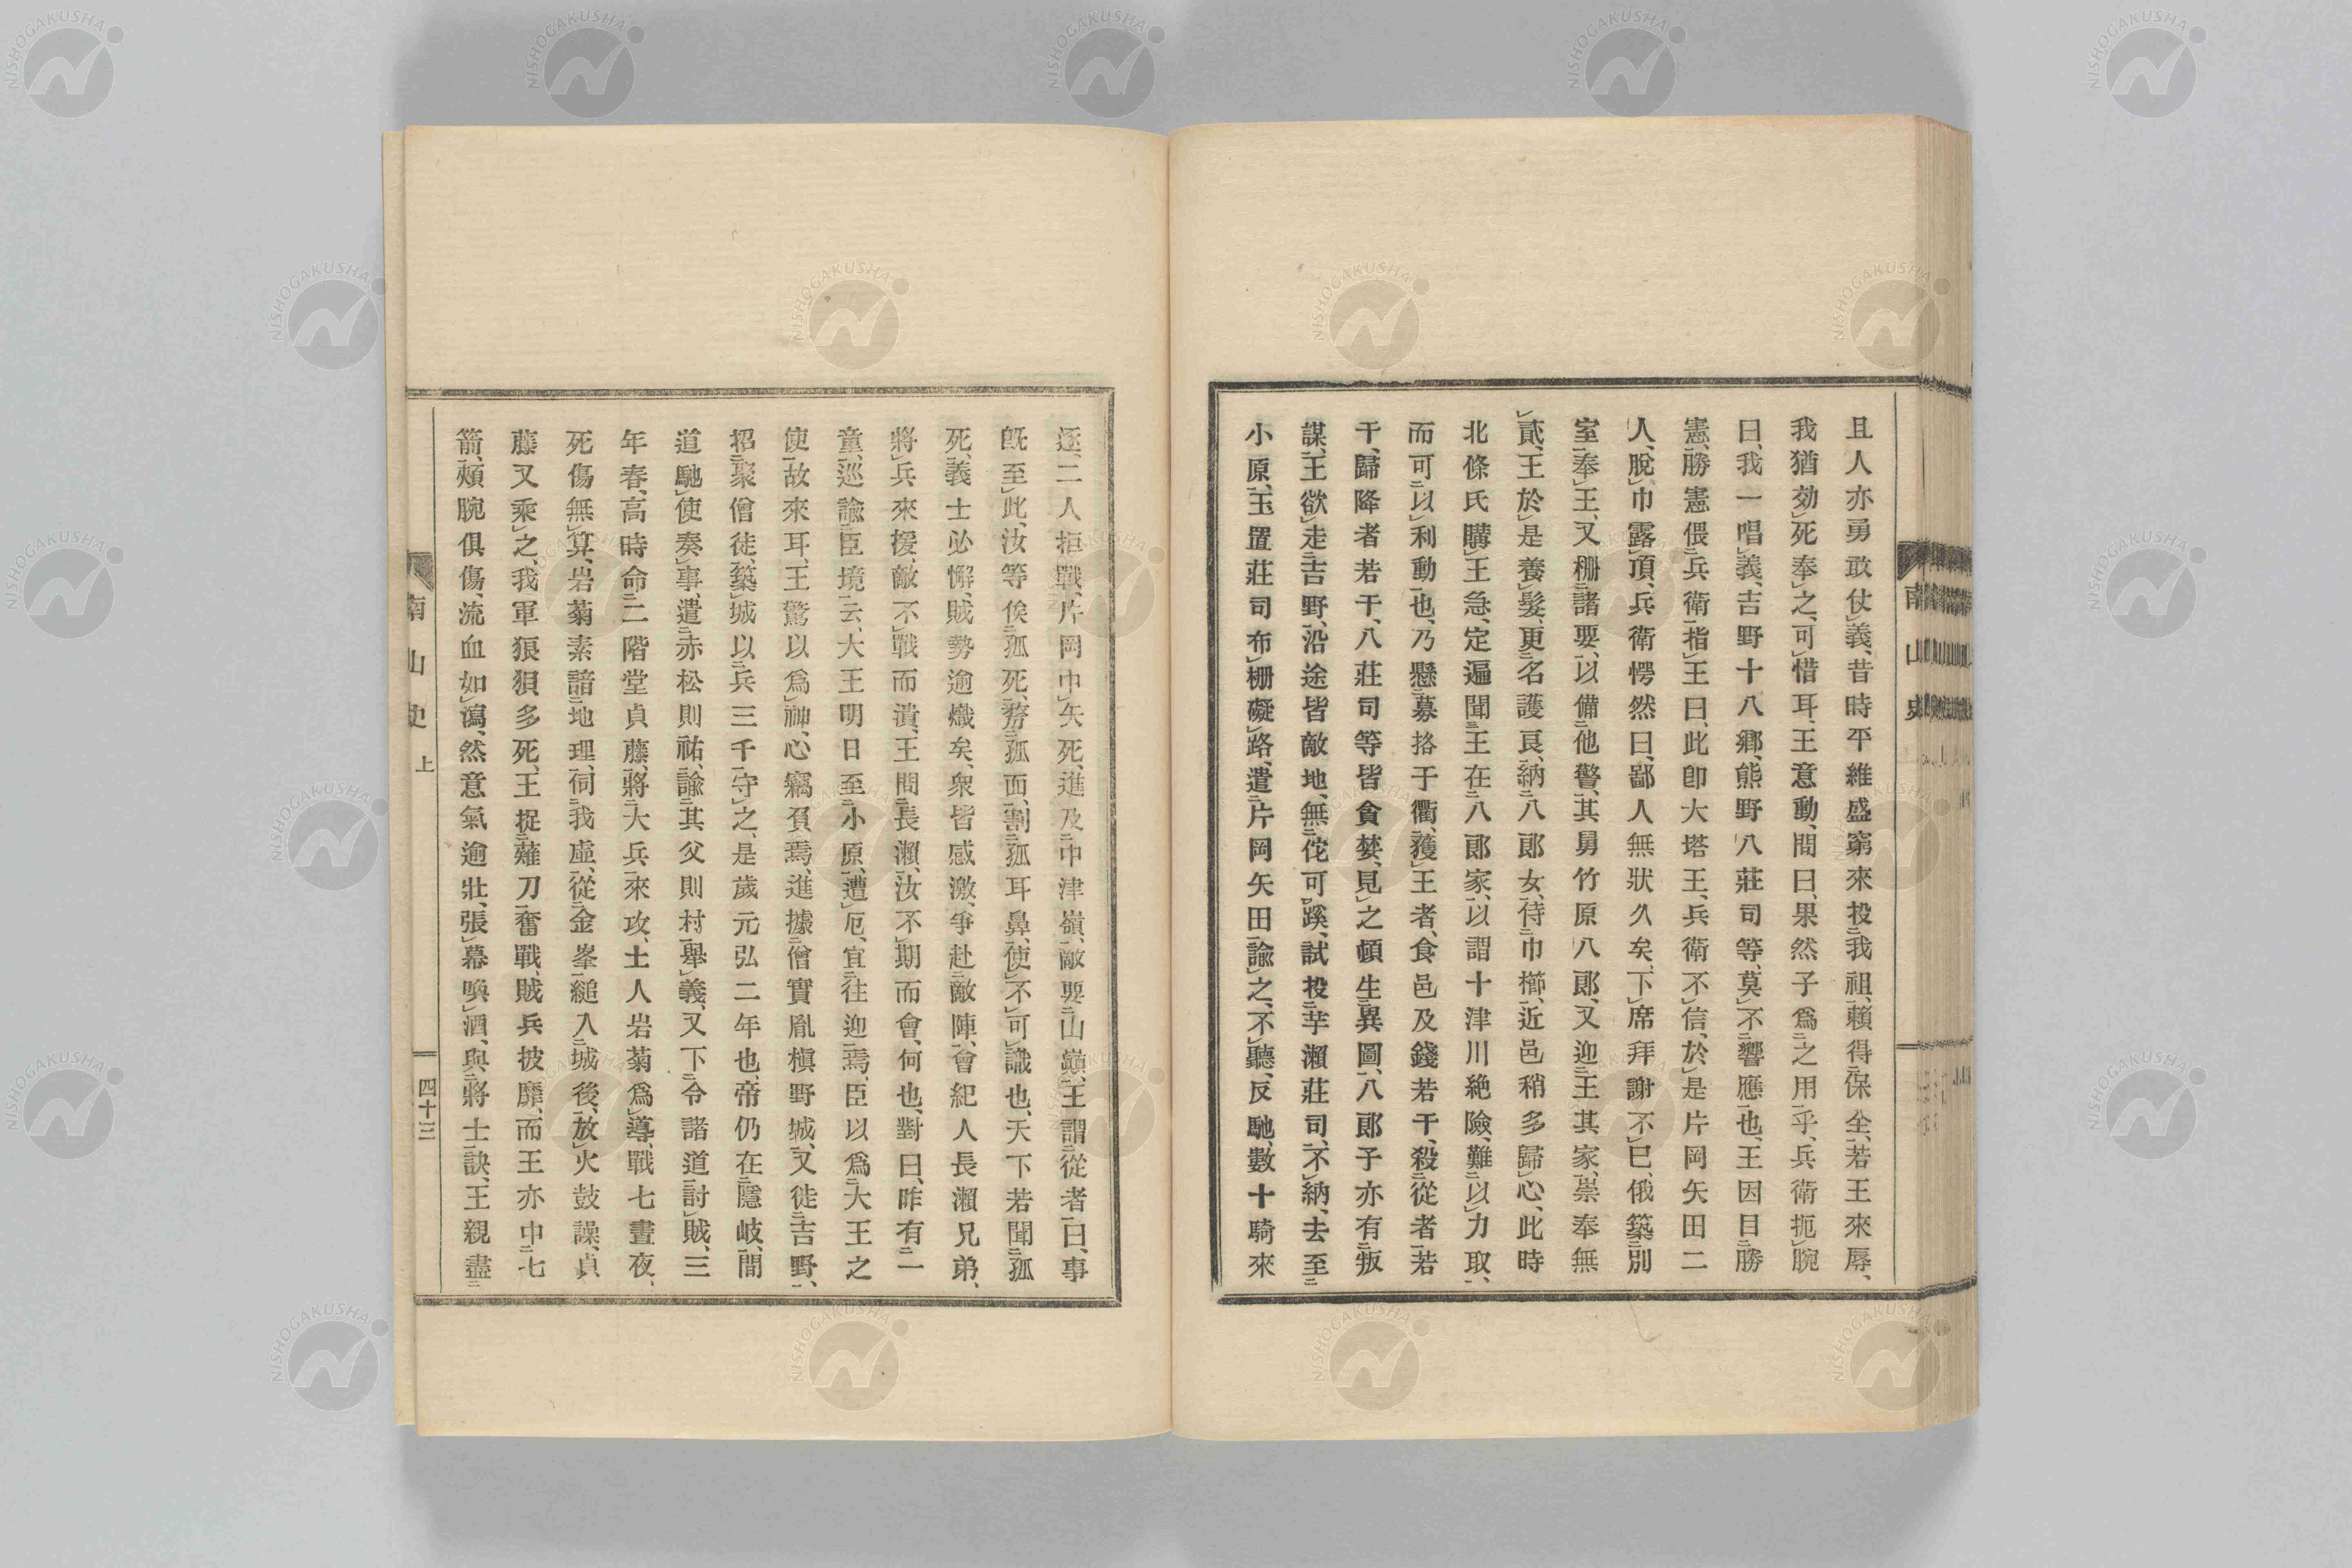 且人亦勇敢仗義、昔時平維盛窮來投我祖、賴得保全、若王來辱、
我猶効死奉之、可惜耳、王意動、問曰、果然子爲之用乎、兵衞扼腕
曰、我一唱義、吉野十八鄉、熊野八莊司等、莫不響應也、王因目勝
憲、勝憲偎兵衞指王曰、此卽大塔王、兵衞不信、於是片岡矢田二
人、脫巾露頂、兵衞愕然曰、鄙人無狀久矣、下席拜謝不已、俄築別
室奉王、又柵諸要、以備他警、其舅竹原八郞、又迎王其家、崇奉無
貳、王於是養髮、更名護良、納八郞女、侍巾櫛、近邑稍多歸心、此時
北條氏購王急、定遍聞王在八郞家、以謂十津川絶險、難以力取、
而可以利動也、乃懸募挌于衢、獲王者、食邑及錢若干、殺從者若
干、歸降者若干、八莊司等皆貪婪、見之頓生異圖、八郞子亦有叛
謀、王欲走吉野、沿途皆敵地、無佗可蹊、試投芋瀨莊司、不納、去至
小原、玉置莊司布柵礙路、遣片岡矢田諭之、不聽、反馳數十騎來
逐、二人拒戰、片岡中矢死、進及中津嶺、敵要山巓、王謂從者曰、事
旣至此、汝等俟孤死、剺孤面、割孤耳鼻、使不可識也、天下若聞孤
死、義士必懈、賊勢逾熾矣、衆皆感激、爭赴敵陣、會紀人長瀨兄弟、
將兵來援、敵不戰而潰、王問長瀨、汝不期而會、何也、對曰、昨有一
童、巡諭臣境云、大王明日至小原、遭厄、宜往迎焉、臣以爲大王之
使、故來耳、王驚以爲神、心竊負焉、進據僧實胤槇野城、又徙吉野、
招聚僧徒、築城以兵三千守之、是歲元弘二年也、帝仍在隱岐、間
道馳使奏事、遣赤松則祐、諭其父則村擧義、又下令諸道討賊、三
年春、高時命二階堂貞藤、將大兵來攻、土人岩菊爲導、戰七晝夜、
死傷無算、岩菊素諳地理、伺我虛、從金峯縋入城後、放火鼓譟、貞
藤又乘之、我軍狼狽多死、王捉薙刀奮戰、賊兵披靡、而王亦中七
箭、頰腕俱傷、流血如瀉、然意氣逾壯、張幕喚酒、與將士訣、王親盡
南山史 上
四十三
南山史